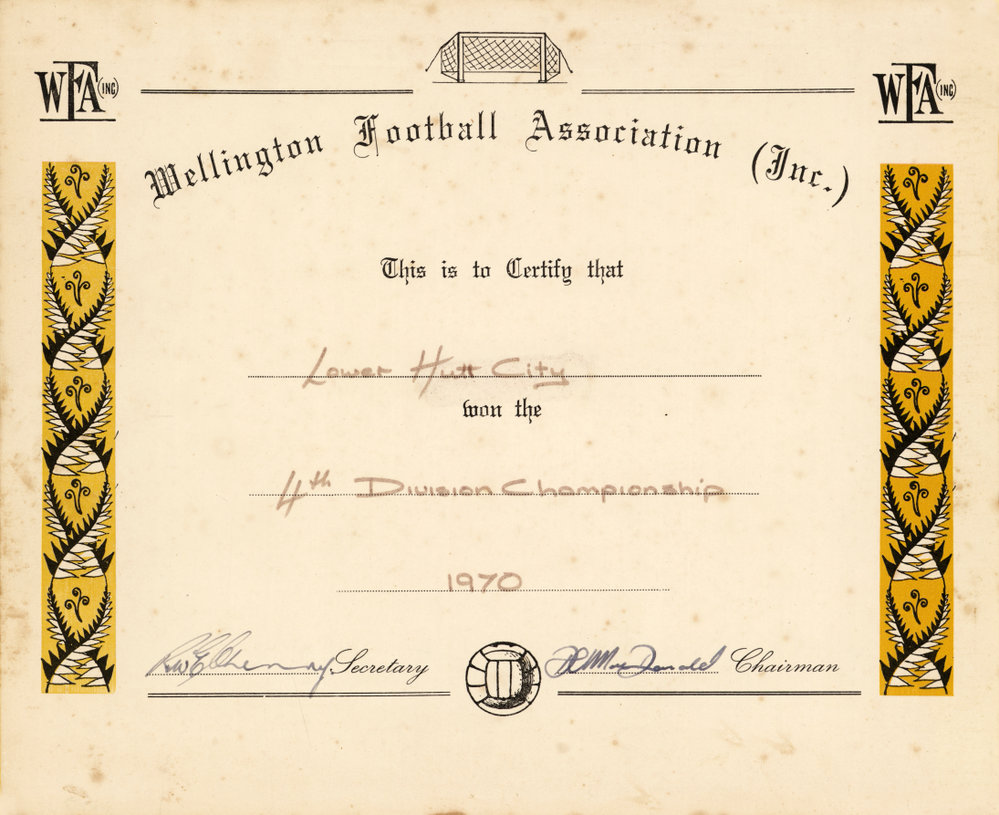 WFA (INC) WFA (INC)
Wellington Football Association (Inc.)
This is to Certify that
Lower Hutt City
won the
4th Division Championship
1970
Secretary Chairman